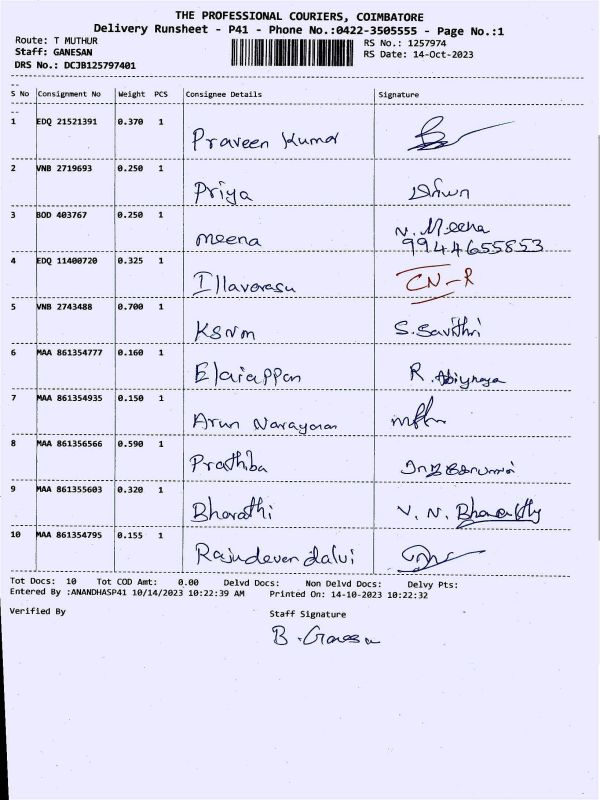 THE PROFESSIONAL COURIERS, COIMBATORE
Delivery Runsheet - P41 - Phone No.:0422-3505555 - Page No.:1
Route: T MUTHUR RS No.: 1257974
Staff: GANESAN RS Date: 14-Oct-2023
DRS No.: DCJB125797401
S No Consignment No Weight PCS Consignee Details Signature
1 EDQ 21521391 0.370 1 Praveen Kumar
2 VNB 2719693 0.250 1 Priya
3 BOD 403767 0.250 1 meena N. Meena
9944655853
4 EDQ 11400720 0.325 1 Illavarasu CN-R
5 VNB 2743488 0.700 1 KSNM S. Savithri
6 MAA 861354777 0.160 1 Elaiappan R.
7 MAA 861354935 0.150 1 Arun Narayanan
8 MAA 861356566 0.590 1 Prathiba
9 MAA 861355603 0.320 1 Bharathi V. N.
10 MAA 861354795 0.155 1
Tot Docs: 10 Tot COD Amt: 0.00 Delvd Docs: Non Delvd Docs: Delvy Pts:
Entered By :ANANDHASP41 10/14/2023 10:22:39 AM Printed On: 14-10-2023 10:22:32
Verified By Staff Signature
B.